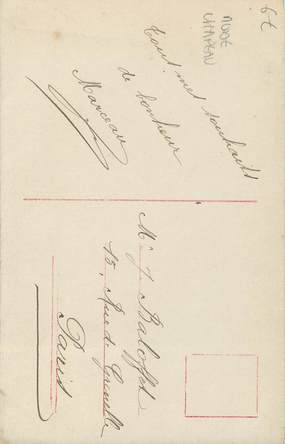 6€
MODE
CHAPEAU
Tout mes souhaits
de bonheur
Marceau
Mr J. Baloffet
15, Rue de Grenelle
Paris